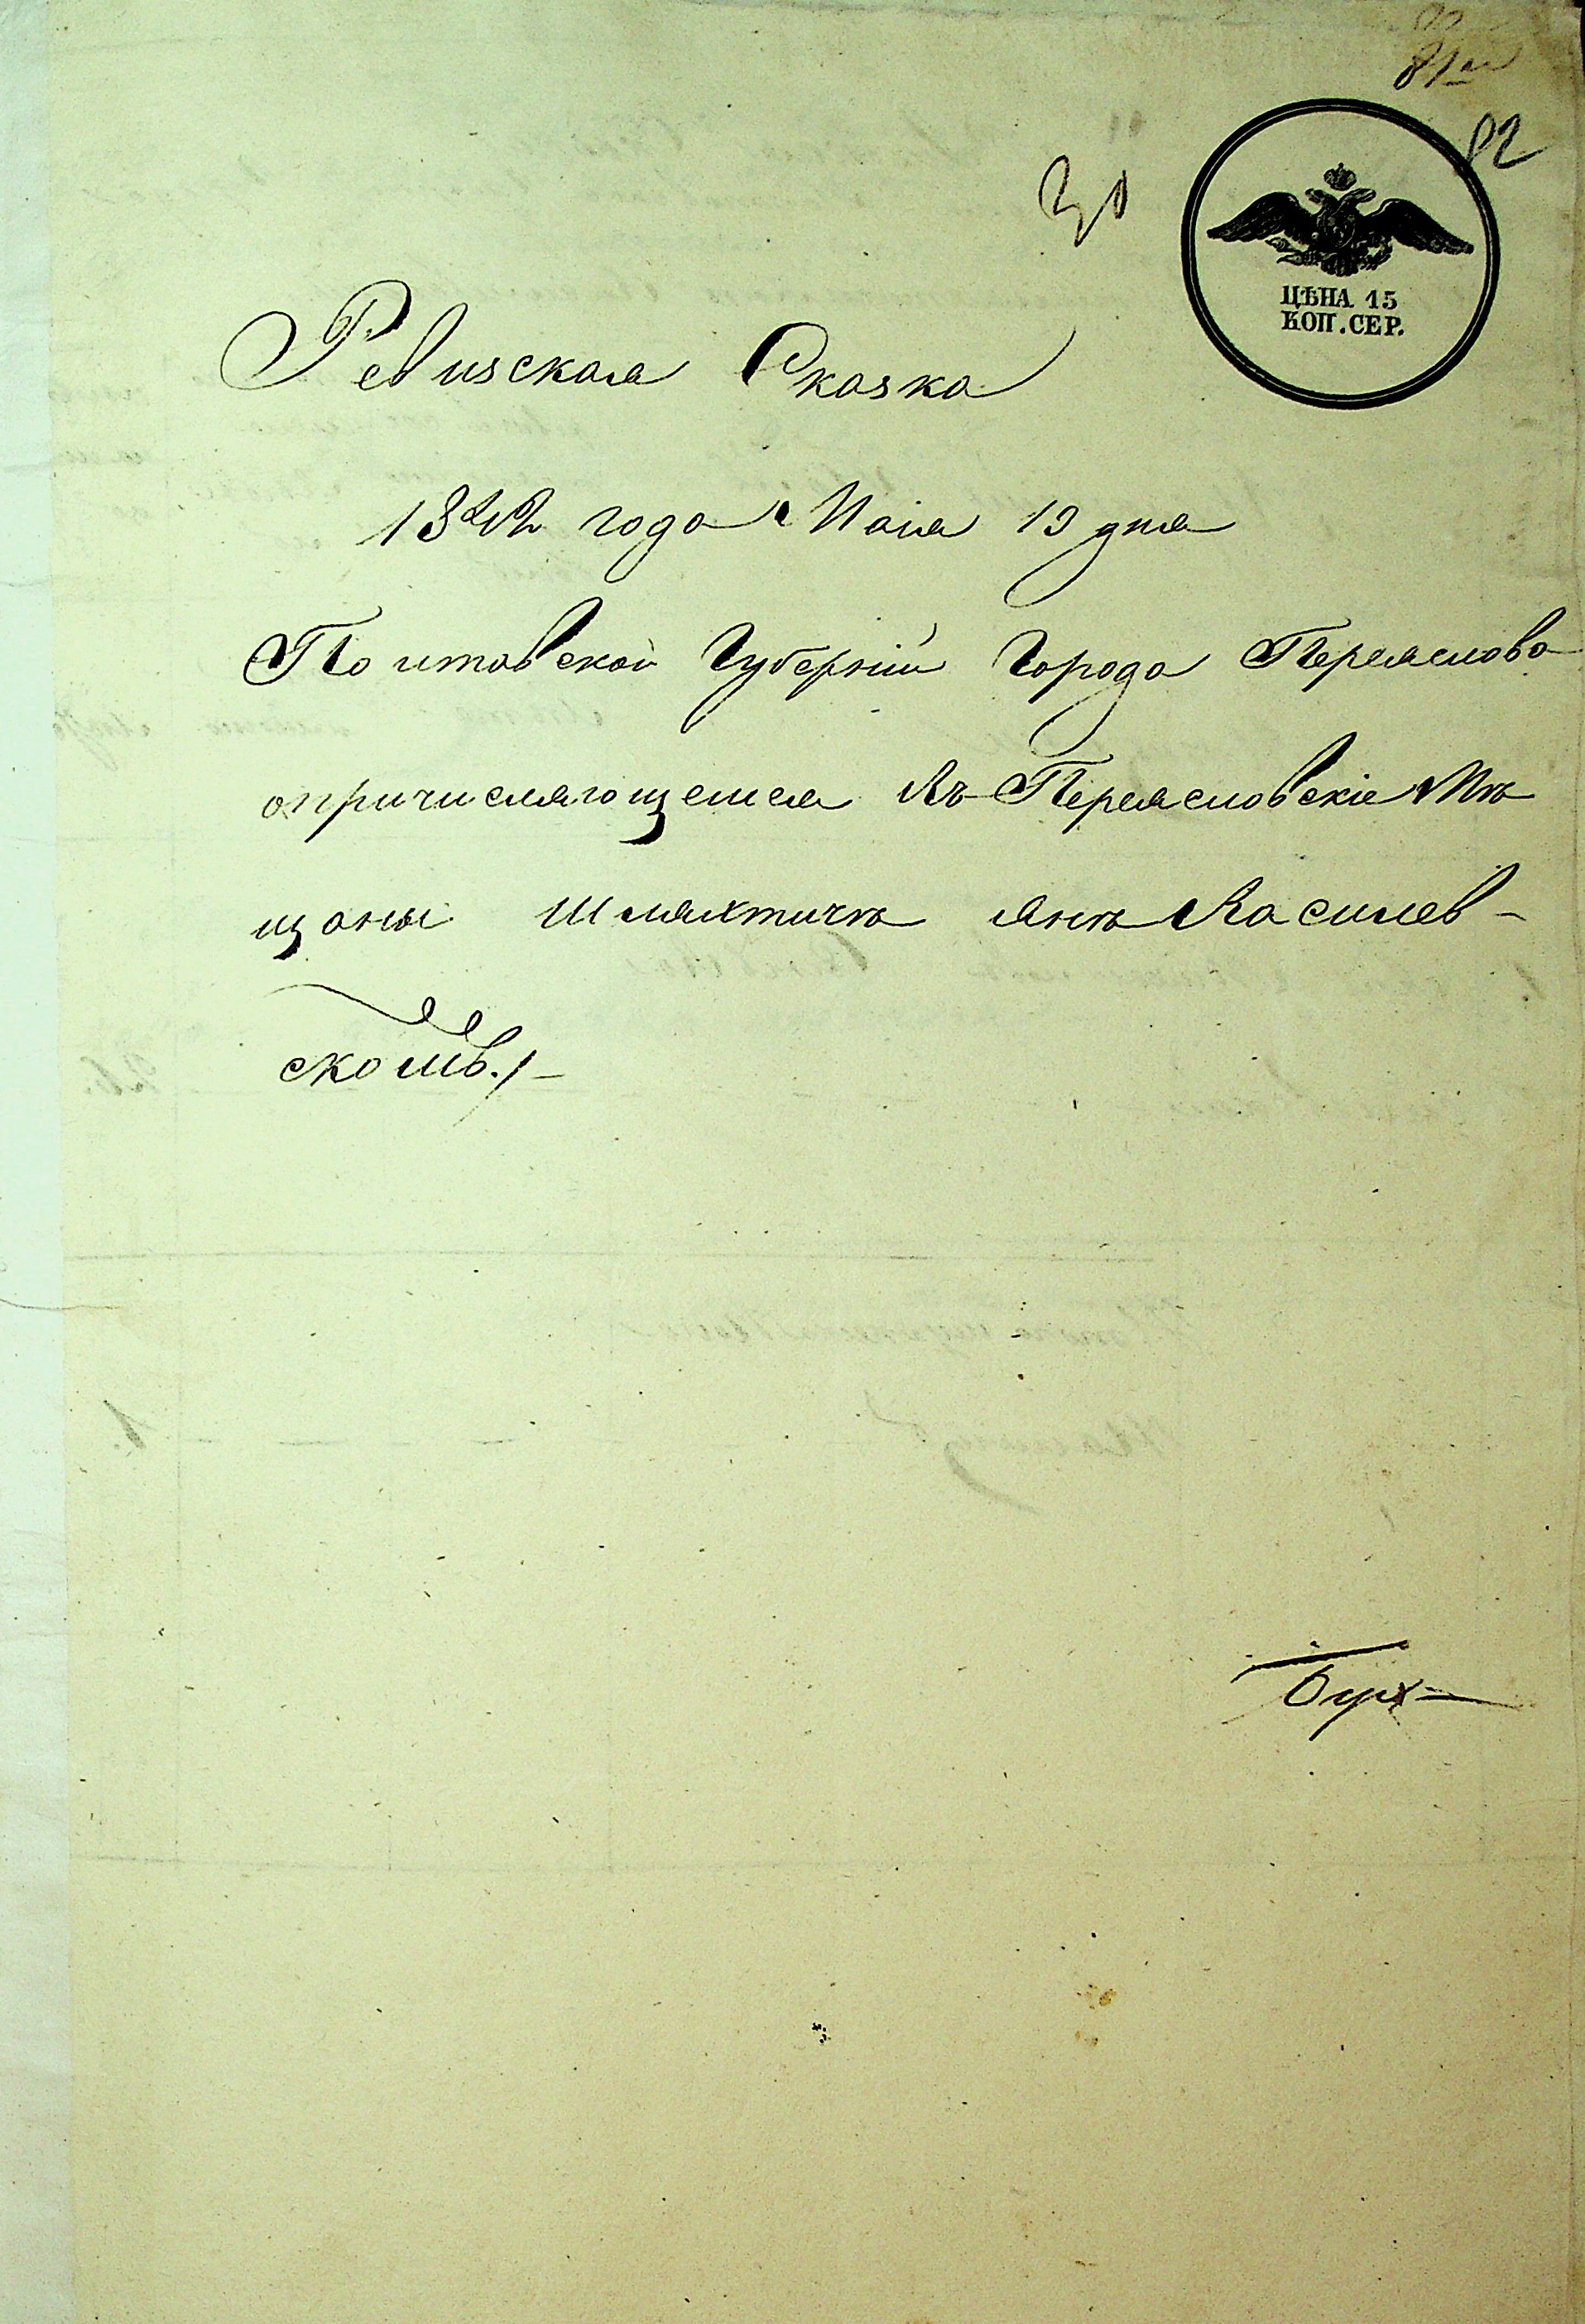 82
30
ЦѢНА 15
КОП. СЕР.
Ревизская Сказка
1842 года Маія 19 дня
Полтавской Губерніи Города Переяслова
опричисляющемся Въ Переясловскіе Мѣ
щаны Шляхтичѣ Янѣ Василев-
скомъ./-